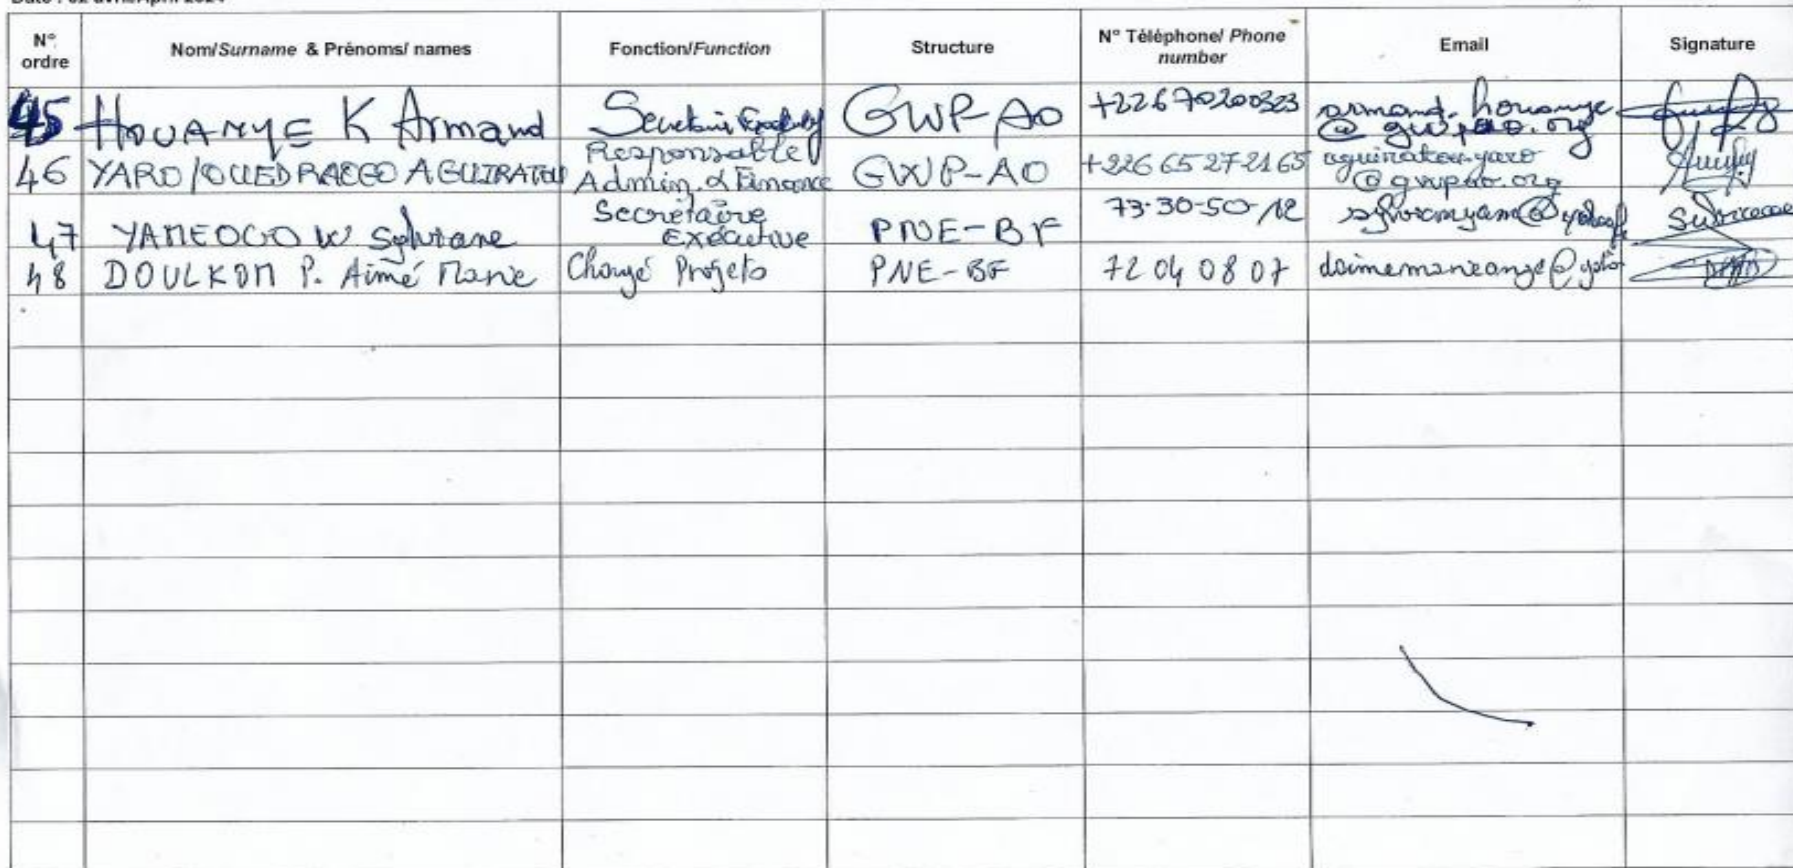 N° ordre Nom/Surname & Prénoms/ names Fonction/Function Structure N° Téléphone/ Phone number Email Signature
45 HOUANYE K Armand Secrétaire Exécutif GWP-AO +22670200323 armand.houanye @gwpao.org
46 YARO/OUEDRAOGO AGUIRATOU Responsable Admin. & Finance GWP-AO +226 65 27-21 65 aguiratou.yaro @gwpao.org
47 YAMEOGO W Sylviane Secrétaire Exécutive PNE-BF 73-30-50-12
48 DOULKOM P. Aimé Marie Chargé Projets PNE-BF 72 04 08 07